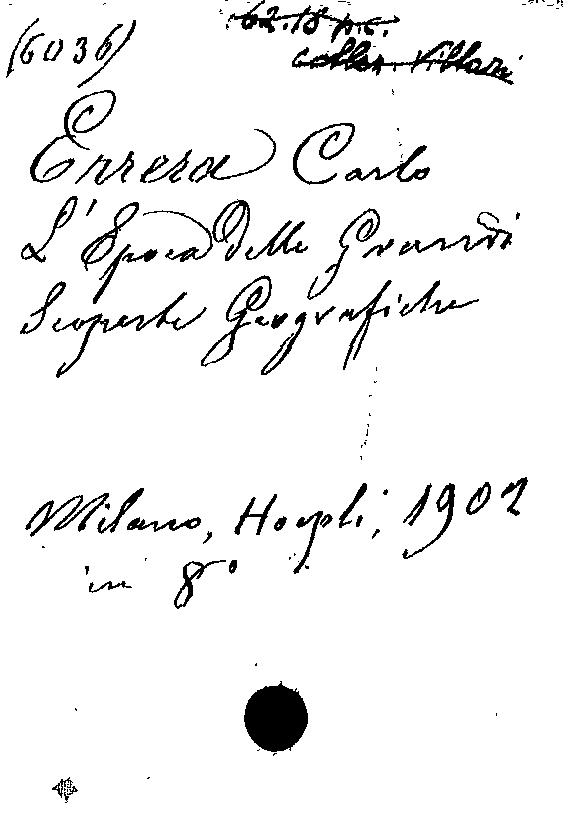 (6036)
62.18 p.c.
collez. Villari
Errera Carlo
L'Epoca delle Grandi
Scoperte Geografiche
Milano, Hoepli, 1902
in 8°